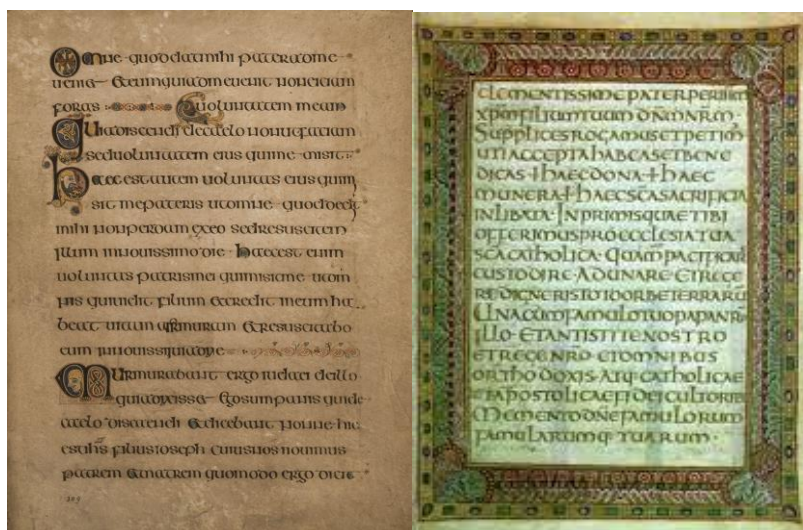 Omne quod dat mihi pater ad me
ueniet & eum qui ad me uenit non eiciam
foras uoluntatem meam
Quia discendi de caelo non ut faciam
sed uoluntatem eius qui me misit
Haec est autem uoluntas eius qui mi
sit me patris ut omne quod dedit
mihi non perdam ex eo sed resuscitem
illum in nouissimo die haec est enim
uoluntas patris mei qui misit me ut om
nis qui uidit filium & credit in eum ha
beat uitam & resuscitabo
eum in nouissimo die
Murmurabant ergo iudaei de illo
quia Ego sum panis qui de
caelo discendi & dicebant nonne hic
est ihs filius ioseph cuius nos nouimus
patrem & matrem quomodo ergo dicit
CLEMENTISSIME PATER PER IHM
XPM FILIUM TUUM DNM NRM
SUPPLICES ROGAMUS ET PETIM
UTI ACCEPTA HABEAS ET BENE
DICAS + HAEC DONA + HAEC
MUNERA + HAEC SCA SACRIFICIA
INLIBATA · IN PRIMIS QUAE TIBI
OFFERIMUS PRO ECCLESIA TUA
SCA CATHOLICA · QUAM PACIFICAR
CUSTODIRE · ADUNARE ET REGE
RE DIGNERIS TOTO ORBE TERRARU
UNA CUM FAMULO TUO PAPA NRO
ILLO · ET ANTISTITE NOSTRO
ET REGE NRO · ET OMNIBUS
ORTHODOXIS · ATQ · CATHOLICAE
ET APOSTOLICAE FIDEI CULTORIB
MEMENTO DNE FAMULORUM
FAMULARUMQ TUARUM ·